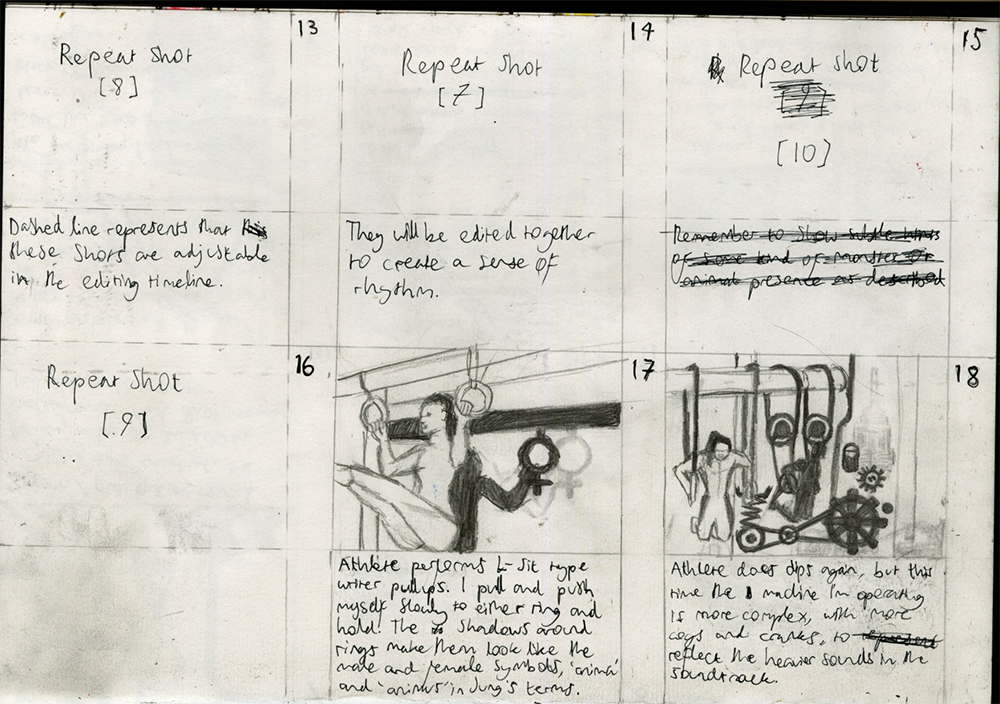 13
Repeat Shot
[8]
Dashed line represents that
these shots are adjustable
in the editing timeline.
14
Repeat Shot
[7]
They will be edited together
to create a sense of
rhythm.
15
Repeat Shot
[10]
Remember to show subtle hints
of some kind of monster or
animal presence as described
16
Repeat Shot
[9]
17
Athlete performs L-Sit type
writer pullups. I pull and push
myself slowly to either ring and
hold. The shadows around
rings make them look like the
male and female symbols, 'anima'
and 'animus' in Jung's terms.
18
Athlete does dips again, but this
time the machine I'm operating
is more complex, with more
cogs and cranks, to represent
reflect the heavier sounds in the
soundtrack.